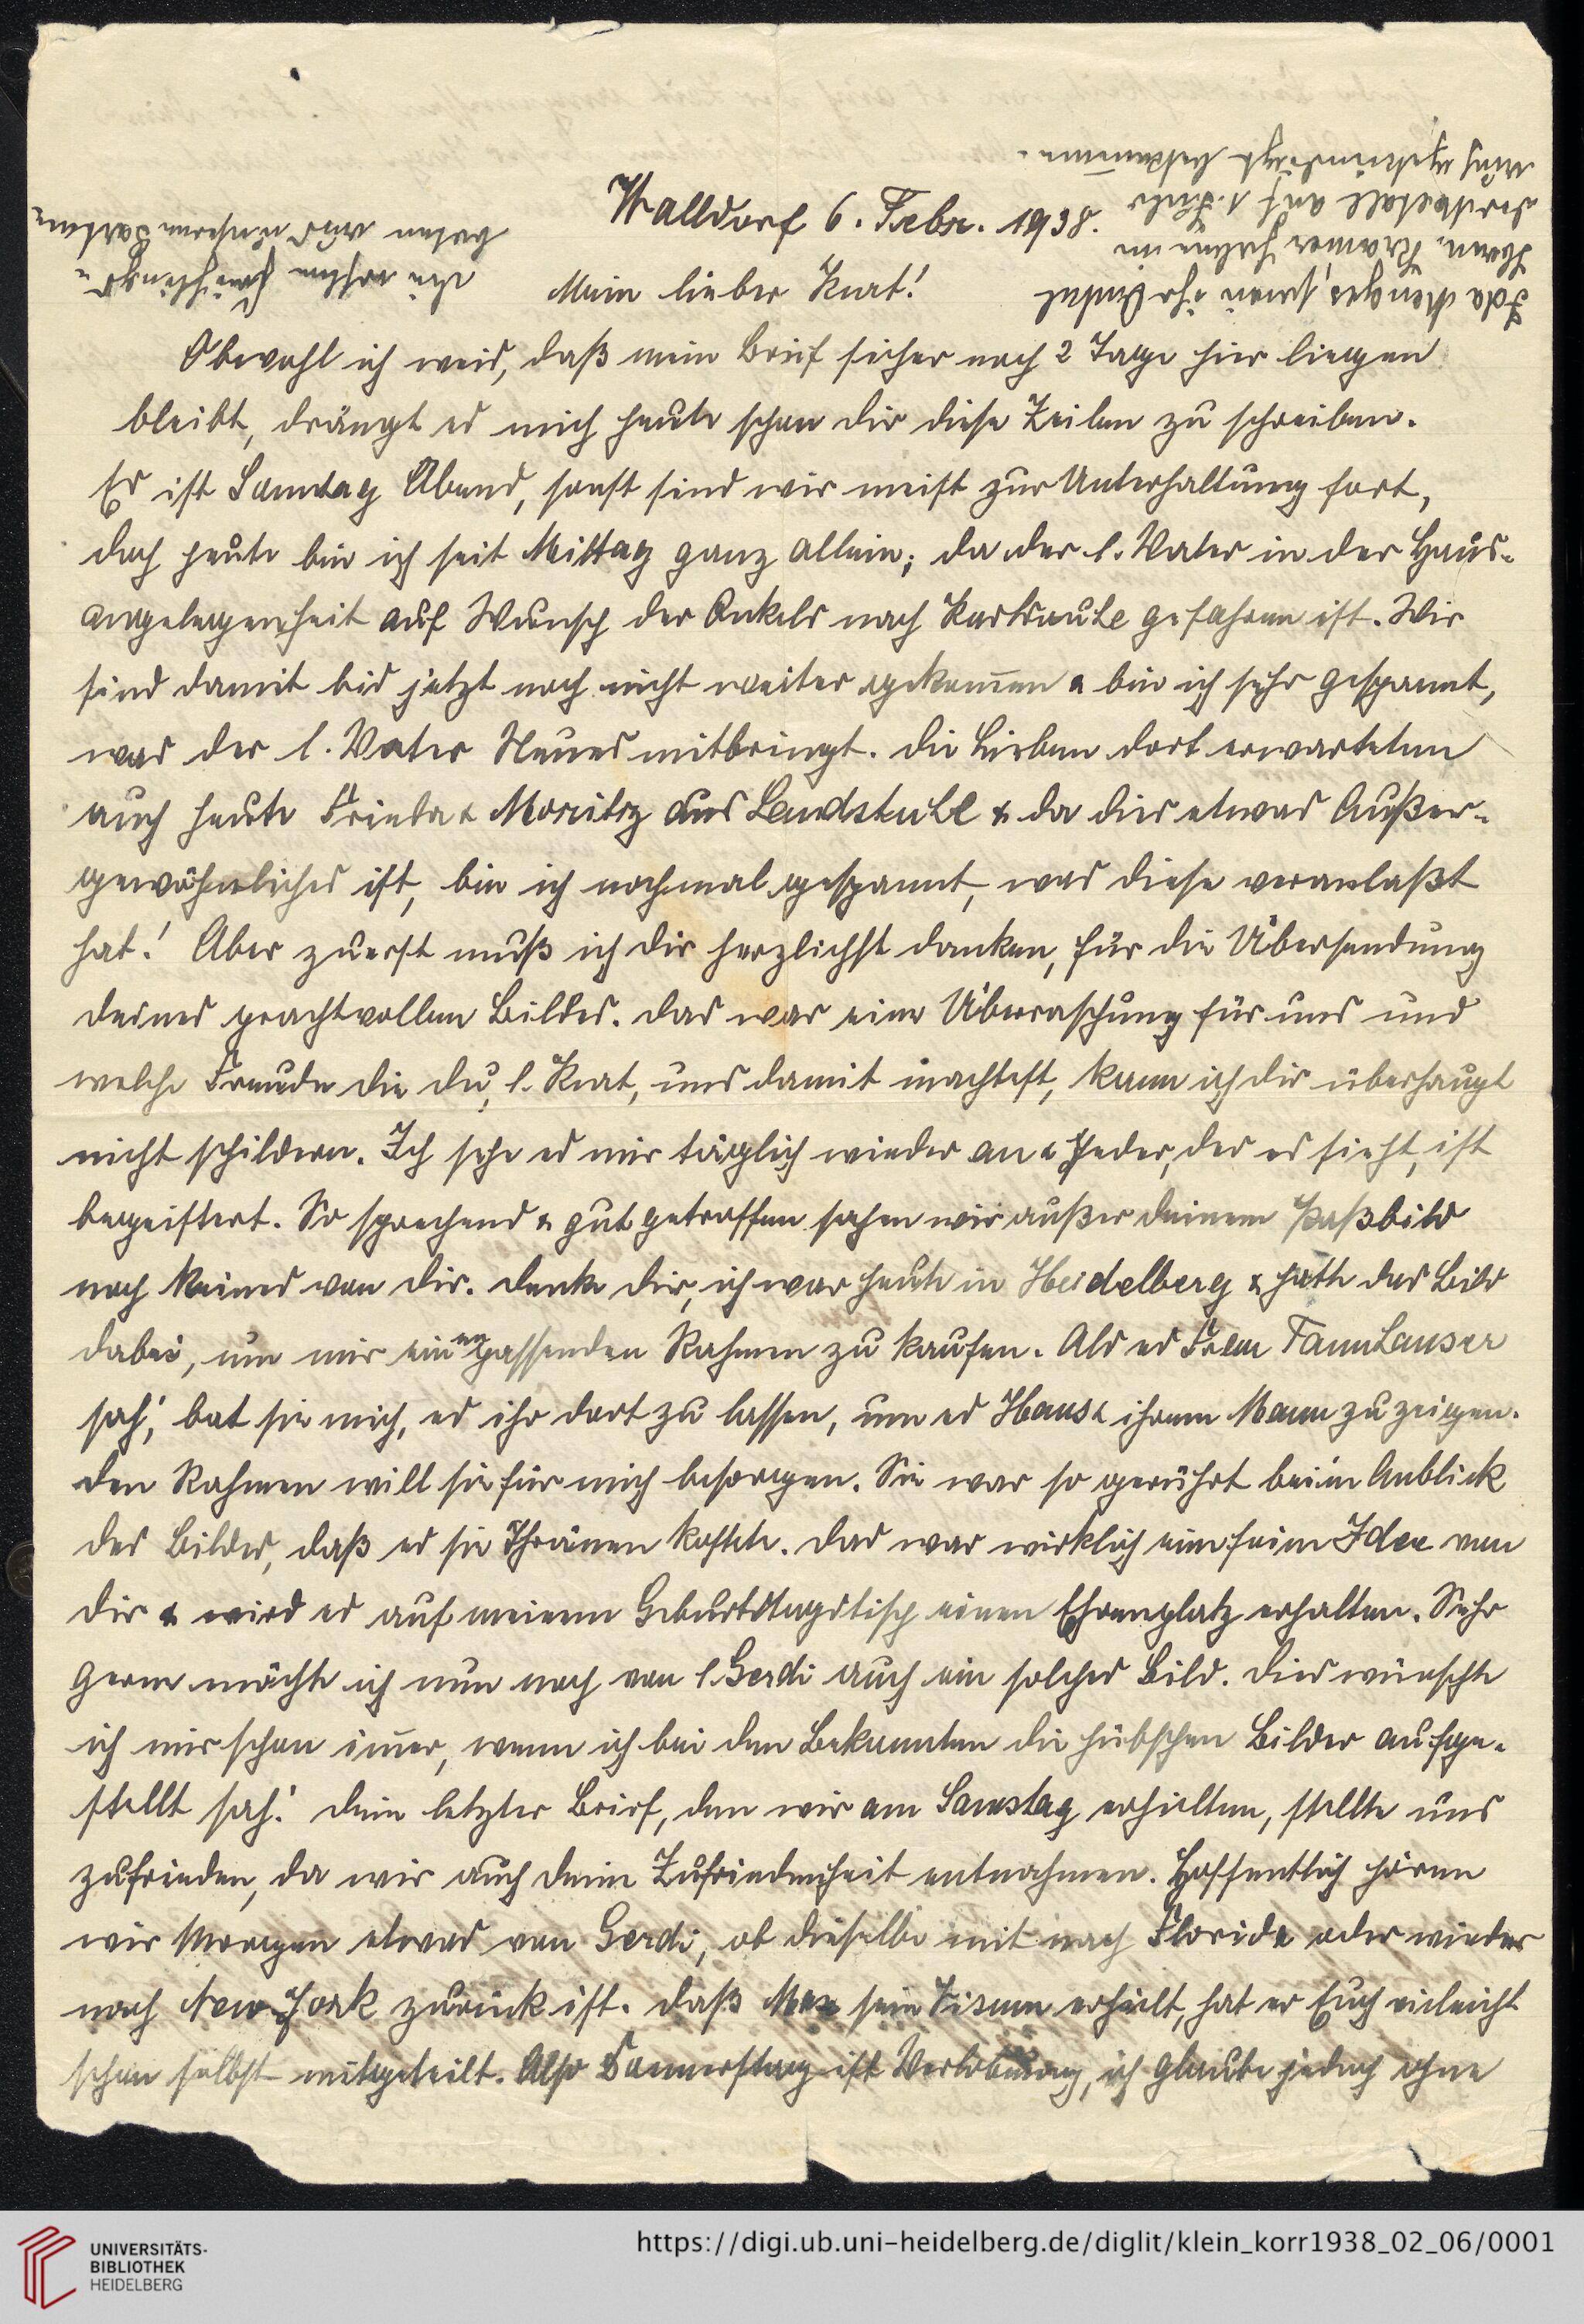 Walldorf 6. Febr. 1938.
Mein lieber Kurt!
Obwohl ich weis, daß mein Brief sicher noch 2 Tage hier liegen
bleibt, drängt es mich heute schon dir diese Zeilen zu schreiben.
Es ist Sonntag Abend, sonst sind wir meist zur Unterhaltung fort,
doch heute bin ich seit Mittag ganz allein; da der l. Vater in der Haus-
angelegenheit auf Wunsch der Onkels nach Karlsruhe gefahren ist. Wir
sind damit bis jetzt noch nicht weiter gekom̅en & bin ich sehr gespannt,
was der l. Vater Neues mitbringt. Die Lieben dort erwarteten
auch heute Frieda & Moritz aus Landstuhl & da dies etwas Außer-
gewöhnliches ist, bin ich nochmal gespannt, was diese veranlaßt
hat! Aber zuerst muß ich dir herzlichst danken, für die Übersendung
deines prachtvollen Bildes. Das war eine Überraschung für uns und
welche Freude die du, l. Kurt, uns damit machtest, kann ich dir überhaupt
nicht schildern. Ich sehe es mir täglich wieder an & Jeder, der es sieht, ist
begeistert. So sprechend & gut getroffen sahen wir außer deinem Paßbild
noch keines von dir. Denke dir, ich war heute in Heidelberg & hatte das Bild
dabei, um mir einen passenden Rahmen zu kaufen. Als es Frau
sah, bat sie mich, es ihr dort zu lassen, um es Hans & ihrem Mann zu zeigen.
Den Rahmen will sie für mich besorgen. Sie war so gerührt beim Anblick
des Bildes, daß es sie Thränen kostete. Das war wirklich eine feine Idee von
dir & wird es auf meinem Geburtstagstisch einen Ehrenplatz erhalten. Sehr
gerne möchte ich nun noch von l. Gerdi auch ein solches Bild. Dies wünschte
ich mir schon im̅er, wenn ich bei den Bekannten die hübschen Bilder aufge-
stellt sah! Dein letzter Brief, den wir am Samstag erhielten, stellte uns
zufrieden, da wir auch deine Zufriedenheit entnahmen. Hoffentlich hören
wir Morgen etwas von Gerdi, ob dieselbe mit nach Florida oder wieder
nach New-York zurück ist. Daß Max sein Visum erhielt, hat er Euch vieleicht
schon selbst mitgeteilt. Also Donnerstag ist Verlobung, ich glaube jedoch ohne
Ida Menges sowie ihr Onkel
Herm. Kramer haben im
auf 1.
auch gekündigt bekommen.
UNIVERSITÄTS-
BIBLIOTHEK
HEIDELBERG
https://digi.ub.uni-heidelberg.de/diglit/klein_korr1938_02_06/0001